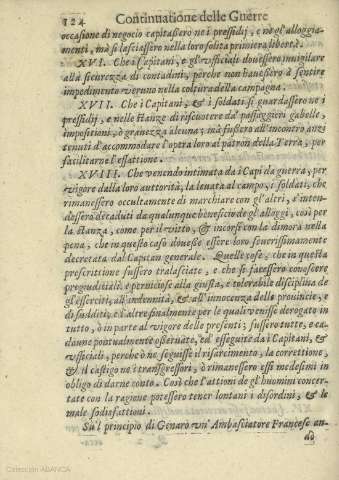 124 Continuatione delle Guerre
occasione di negocio capitassero ne i pressidij, e nè gl'alloggia-
menti, mà si lasciassero nella loro solita primiera libertà.
XVI. Che i Capitani, e gl'ufficiali douessero inuigilare
alla sicurezza di contadini, perche non hauessero à sentire
impedimento veruno nella coltura della campagna.
XVII. Che i Capitani, & i soldati si guardassero ne i
pressidij, e nelle stanze di riscuotere da' passaggieri gabelle,
impositioni, ò grauezza alcuna; mà fussero all'incontro anzi
tenuti d'accommodare l'opera loro al patron della Terra, per
facilitarne l'essattione.
XVIII. Che venendo intimata da i Capi da guerra, per
vigore dalla loro autorità, la leuata al campo, i soldati, che
rimanessero occultamente di marchiare con gl'altri, s'inten-
dessero decaduti da qualunque beneficio de gl'alloggi, così per
la stanza, come per il vitto, & incorsi con la dimora nella
pena, che in questo caso douesse essere loro seuerissimamente
decretata dal Capitan generale. Quelle cose, che in questa
prescrittione fussero tralasciate, e che si facessero conoscere
pregiuditiali, e perniciose alla giusta, e tolerabile disciplina de
gl'esserciti, all'indennità, & all'innocenza delle prouincie, e
di sudditi; e l'altre finalmente per le quali venisse derogato in
tutto, ò in parte al vigore delle presenti; fussero tutte, e ca-
daune pontualmente osseruate, ed essequite da i Capitani, &
vfficiali, perche ò ne seguisse il risarcimento, la correttione,
& il castigo ne i transgressori, ò rimanessero essi medesimi in
obligo di darne conto. Così che l'attioni de gl'huomini concer-
tate con la ragione potessero tener lontani i disordini, & le
male sodisfattioni.
Sù'l principio di Genaro vn' Ambasciatore Francese an-
dò
Colección ABANCA